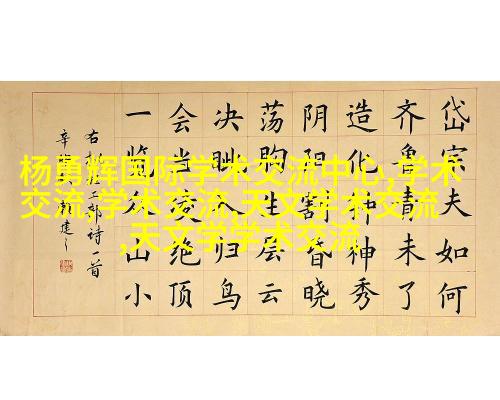 杨勇辉国际学术交流中心,学术
交流,学术交流,天文学术交流
,天文学学术交流
岱宗夫如何
齐鲁青未了
造化钟神秀
阴阳割昏晓
荡胸生层云
决眦入归鸟
会当凌绝顶
一览众山小
右杜工部诗一首
辛